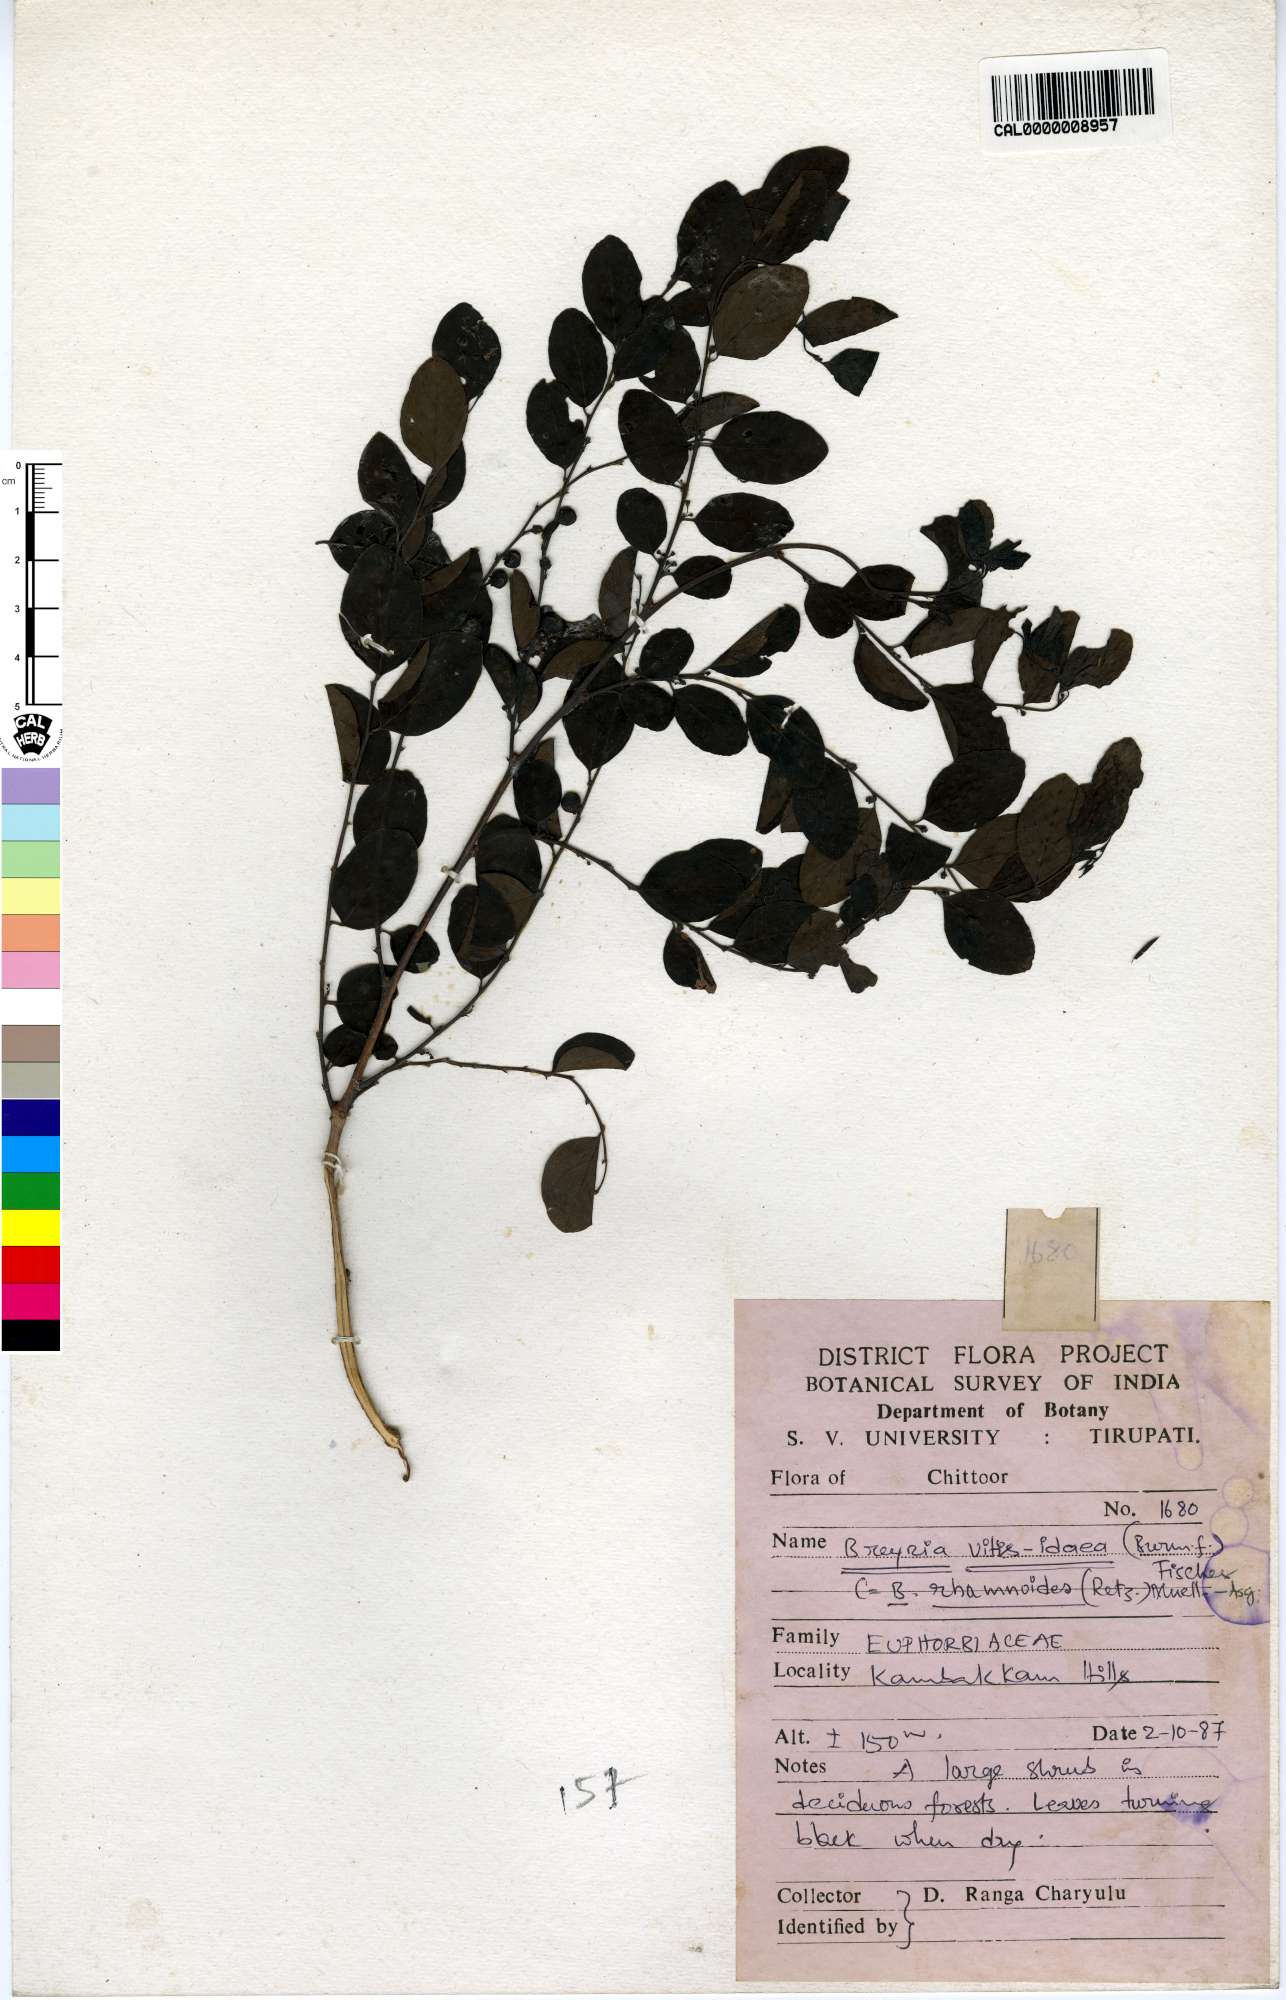 CAL0000008957
0
cm
1
2
3
4
5
CAL
HERB
CENTRAL NATIONAL HERBARIUM
1680
DISTRICT FLORA PROJECT
BOTANICAL SURVEY OF INDIA
Department of Botany
S. V. UNIVERSITY : TIRUPATI.
Flora of Chittoor
No. 1680
Name Breynia vitis-idaea (Burm.f.)
Fischer
(= B. rhamnoides (Retz.) Muell.-Arg.
Family EUPHORBIACEAE
Locality Kambakkam Hills
Alt. ± 150 m. Date 2-10-87
Notes A large shrub in
deciduous forests. Leaves turning
black when dry.
Collector } D. Ranga Charyulu
Identified by
157